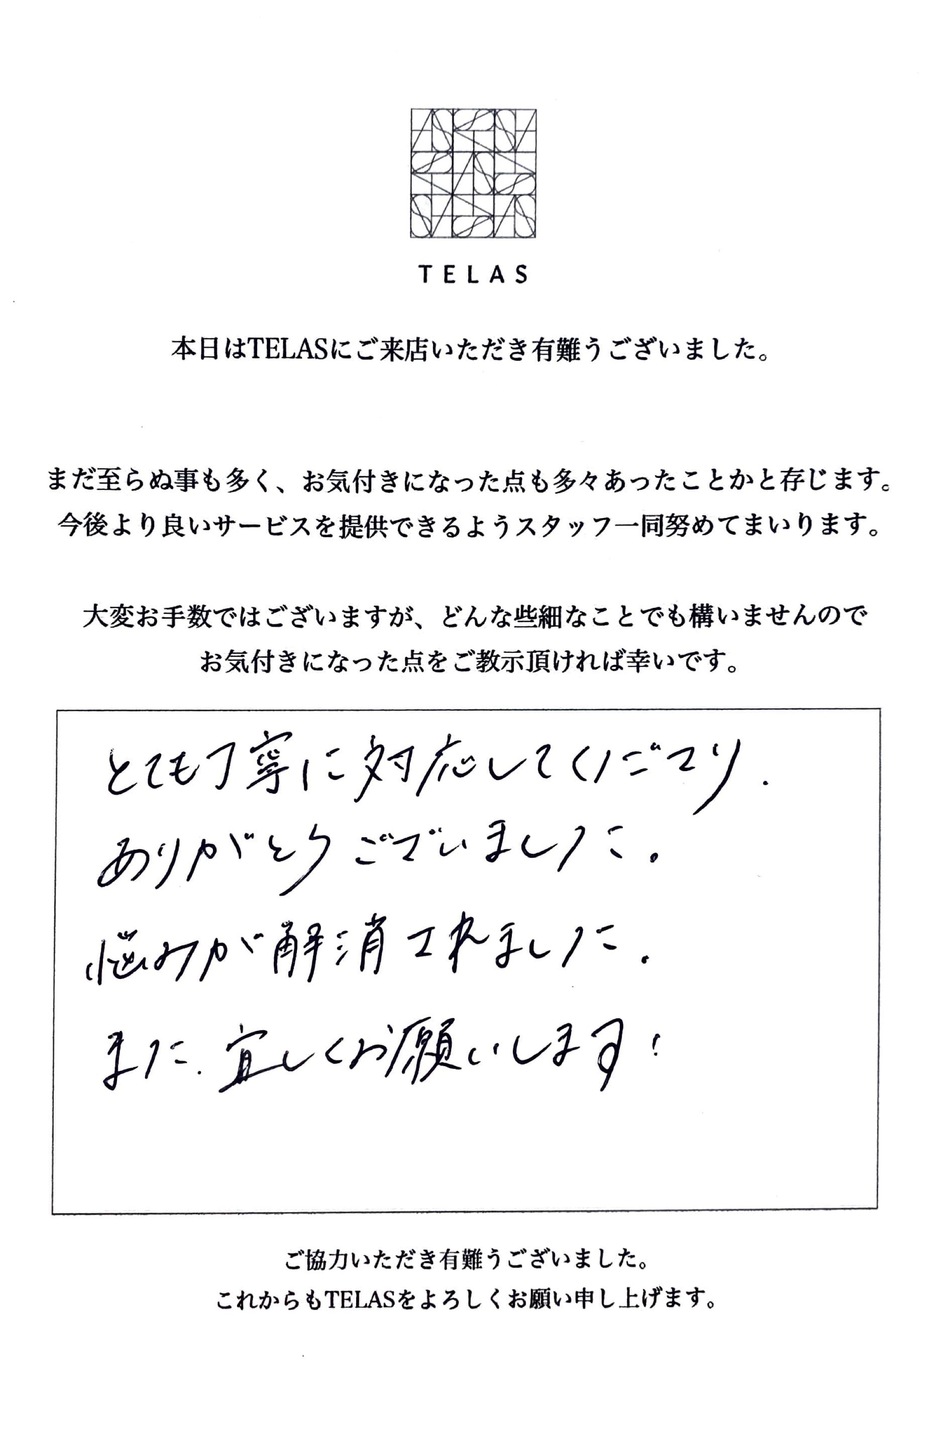 TELAS
本日はTELASにご来店いただき有難うございました。
まだ至らぬ事も多く、お気付きになった点も多々あったことかと存じます。
今後より良いサービスを提供できるようスタッフ一同努めてまいります。
大変お手数ではございますが、どんな些細なことでも構いませんので
お気付きになった点をご教示頂ければ幸いです。
とても丁寧に対応してくださり、
ありがとうございました。
悩みが解消されました。
また、宜しくお願いします!
ご協力いただき有難うございました。
これからもTELASをよろしくお願い申し上げます。